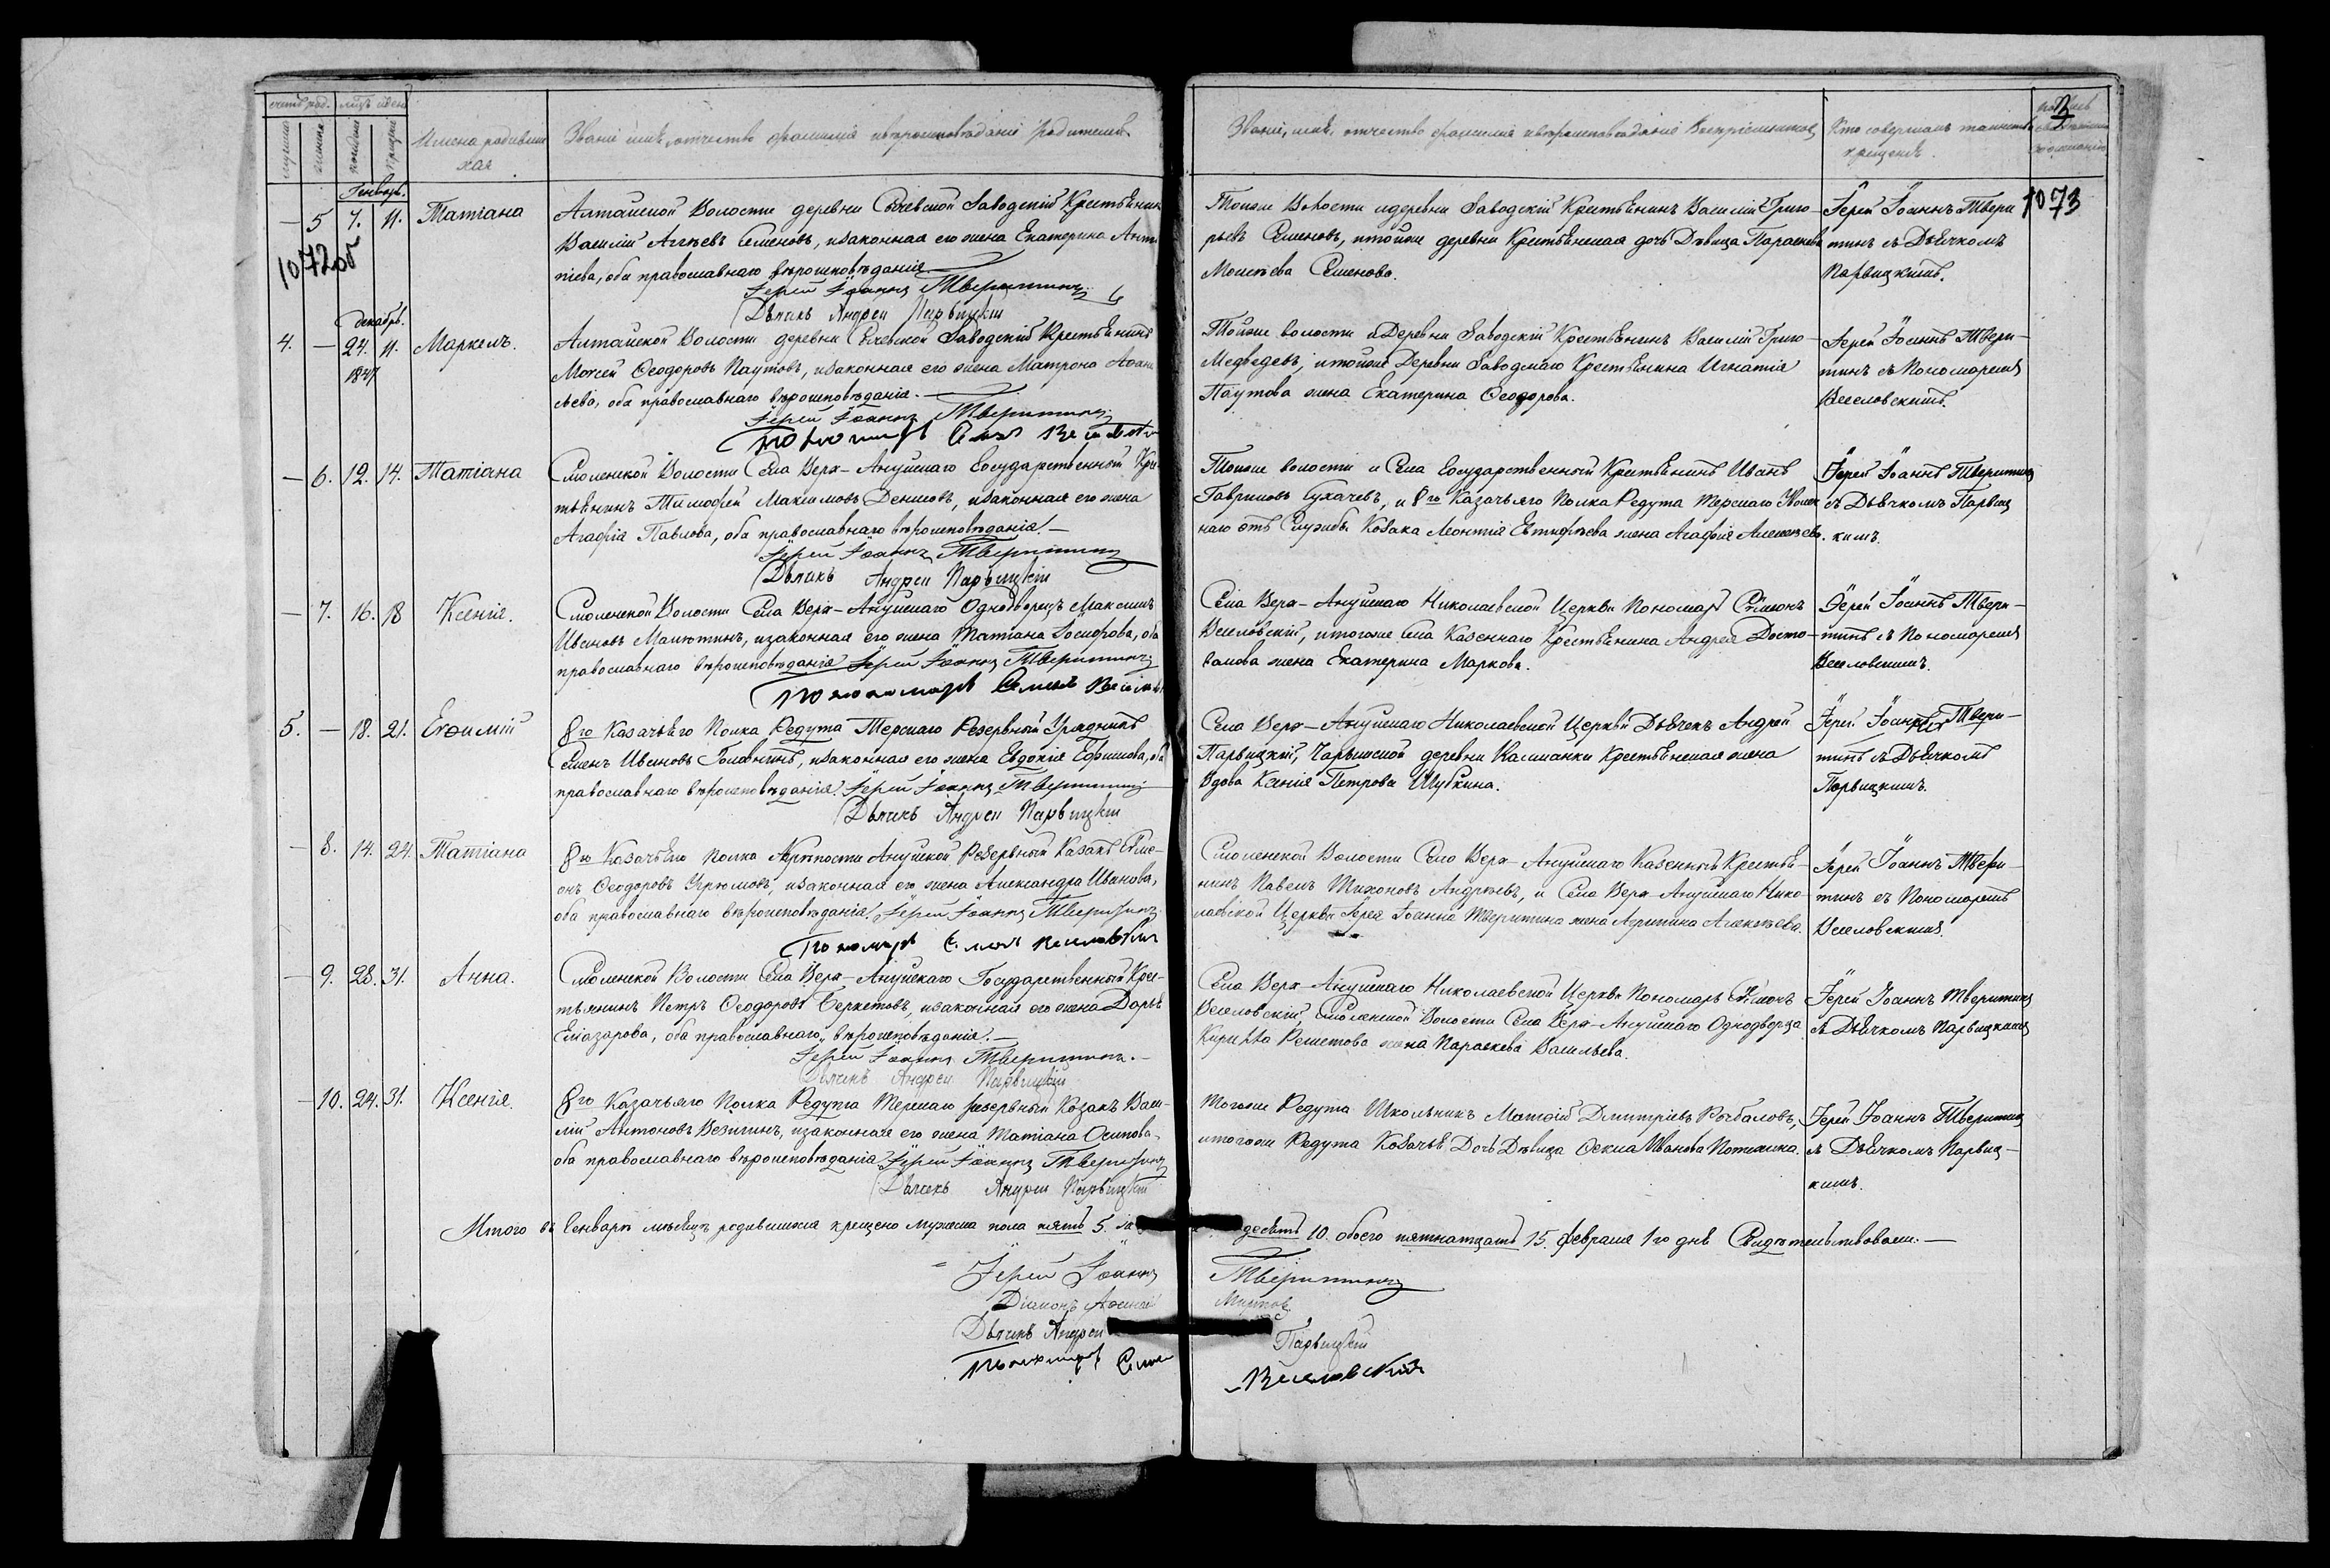 Имена родившихся
Званіе имя, отчество фамилія и вѣроисповѣданіе родителей.
Генварь.
— 5 7. 11. Татіана
Алтайской Волости деревни Сычевской Заводскій Крестьянинъ
Василій Аггѣевъ Семеновъ, изаконная его жена Екатерина Анти
піева, оба православнаго вѣроисповѣданія.
Іерей Іоаннъ Тверитинъ
Дьячекъ Андрей Парвицкій
1072об
декабрь.
4. — 24. 11. Маркелъ.
1847
Алтайской Волости деревни Сычевской Заводскій Крестьянинъ
Моисей Ѳеодоровъ Паутовъ, изаконная его жена Матрона
оба православнаго вѣроисповѣданія. —
Іерей Іоаннъ Тверитинъ
— 6. 12. 14. Татіана
Смоленской Волости Села Верх-Ануйскаго Государственный Крес
тьянинъ Тимофей Максимовъ Денисовъ, изаконная его жена
Агафія Павлова, оба православнаго вѣроисповѣданія. —
Іерей Іоаннъ Тверитинъ
Дьячекъ Андрей Парвицкій
— 7. 16. 18 Ксенія.
Смоленской Волости Села Верх-Ануйскаго Однодворецъ Максимъ
Ивановъ Малютинъ, изаконная его жена Татіана оба
православнаго вѣроисповѣданія Іерей Іоаннъ Тверитинъ
Пономарь Симеонъ
5. — 18. 21. Евѳимій
8го Казачьяго Полка Редута Терскаго Резервный Урядникъ
Семенъ Ивановъ изаконная его жена Евдокія Ефимова, оба
православнаго вѣроисповѣданія. Іерей Іоаннъ Тверитинъ
Дьячекъ Андрей Парвицкій
— 8. 14. 24. Татіана
8го Казачьяго полка Крѣпости Ануйской Резервный Казакъ Симе-
онъ Ѳеодоровъ Угрюмовъ, изаконная его жена Александра Иванова,
оба православнаго вѣроисповѣданія. Іерей Іоаннъ Тверитинъ
Пономарь Веселовскій
— 9. 28. 31. Анна.
Смоленской Волости Села Верх-Ануйскаго Государственный Крес-
тьянинъ Петръ Ѳеодоровъ Беркетовъ, изаконная его жена Дарья
Елазарова, оба православнаго вѣроисповѣданія. —
Іерей Іоаннъ Тверитинъ. —
Дьячекъ Андрей Парвицкій
— 10. 24. 31. Ксенія.
8го Казачьяго Полка Редута Терскаго резервный Козакъ Васи-
лій Антоновъ изаконная его жена Татіана Осипова
оба православнаго вѣроисповѣданія. Іерей Іоаннъ Тверитинъ
Дьячекъ Андрей Парвицкій
Итого въ Генварѣ мѣсяцѣ родившихся крещено мужеска пола пять 5.
Іерей Іоаннъ
Діаконъ
Дьячекъ Андрей
Пономарь
Званіе, имя, отчество фамилія и вѣроисповѣданіе Воспріемниковъ
Кто совершалъ таинство
крещенія.
3
1073
Тойже Волости и деревни Заводскій Крестьянинъ Василій Григо-
рьевъ Семеновъ, и тойже деревни Крестьянская дочь Дѣвица Параскева
Моисѣева Семенова.
Іерей Іоаннъ Твери
тинъ съ Дьячкомъ
Парвицкимъ.
Тойже волости и Деревни Заводскій Крестьянинъ Василій Григо-
Медведевъ, и тойже Деревни Заводскаго Крестьянина Игнатія
Паутова жена Екатерина Ѳеодорова.
Іерей Іоаннъ Твери-
тинъ съ Пономаремъ
Веселовскимъ.
Тойже волости и Села Государственный Крестьянинъ Иванъ
Гавриловъ Сухачевъ, и 8го Казачьяго Полка Редута Терскаго Уволен
наго отъ Службы Козака Леонтія Евтифѣева жена Агафія Алексѣева.
Іерей Іоаннъ Тверитинъ
съ Дьячкомъ Парвиц
кимъ.
Села Верх-Ануйскаго Николаевской Церкви Пономарь Симеонъ
Веселовскій, и тогоже Села Казеннаго Крестьянина Андрея Досто-
валова жена Екатерина Маркова.
Іерей Іоаннъ Твери-
тинъ съ Пономаремъ
Веселовскимъ.
Села Верх-Ануйскаго Николаевской Церкви Дьячекъ Андрей
Парвицкій, Чарышской деревни Калманки Крестьянская жена
Вдова Ксенія Петрова Шубкина.
Іерей Іоаннъ Твери-
тинъ съ Дьячкомъ
Парвицкимъ.
Смоленской Волости Села Верх-Ануйскаго Казенный Крестья-
нинъ Павелъ Тихоновъ Андрѣевъ, и Села Верх-Ануйскаго Нико-
лаевской Церкви Іерея Іоанна Тверитина жена Агрипина Алексѣева.
Іерей Іоаннъ Твери-
тинъ съ Пономаремъ
Веселовскимъ.
Села Верх-Ануйскаго Николаевской Церкви Пономарь Симеонъ
Веселовскій, Смоленской Волости Села Верх-Ануйскаго Однодворца
Кирилла Решетова жена Параскева Васильева.
Іерей Іоаннъ Тверитинъ
съ Дьячкомъ Парвицкимъ
Тогоже Редута Школьникъ Матѳій Дмитріевъ
и тогоже Редута Козачья Дочь Дѣвица Ѳекла Иванова Потехина.
Іерей Іоаннъ Тверитинъ
съ Дьячкомъ Парвиц-
кимъ.
десять 10. обоего пятнатцать 15. февраля 1го дня Свидѣтельствовали. —
Тверитинъ
Парвицкій
Веселовскій